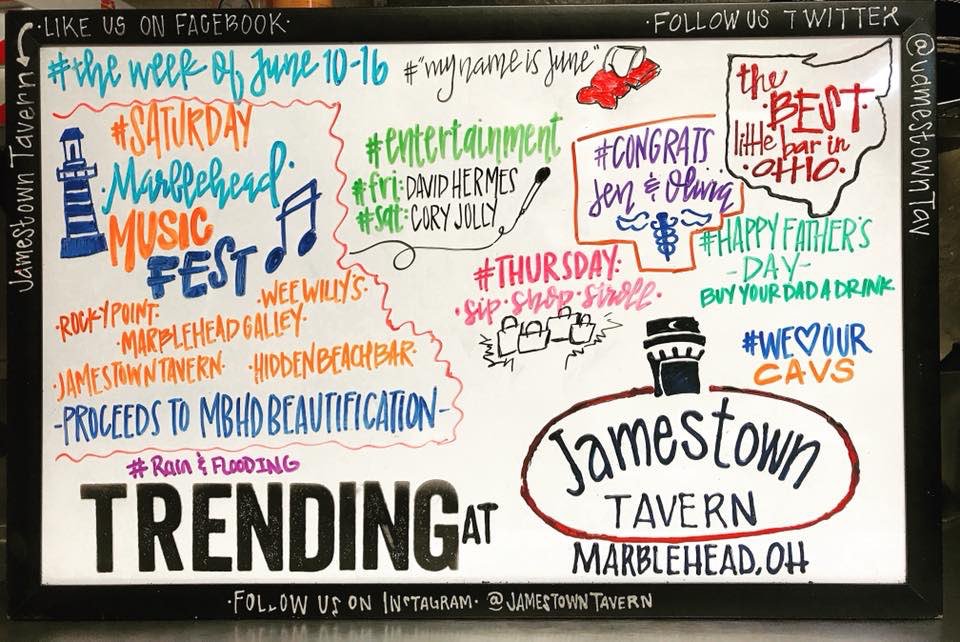 LIKE US ON FACEBOOK
Jamestown Tavern
FOLLOW US TWITTER
@JamestownTav
#the week of June 10-16
#"my name is June"
the
BEST
little
bar in
OHIO.
#SATURDAY
Marblehead
MUSIC
FEST
ROCKY POINT·
·WEE WILLY'S·
·MARBLEHEAD GALLEY·
·JAMESTOWN TAVERN·
·HIDDEN BEACH BAR·
-PROCEEDS TO MBHD BEAUTIFICATION-
#entertainment
#fri: DAVID HERMES
#sat: CORY JOLLY
#CONGRATS
Jen & Olivia
#THURSDAY:
·sip·shop·stroll·
#HAPPY FATHER'S
-DAY-
BUY YOUR DAD A DRINK
#WE♡OUR
CAVS
#Rain & FLOODING
TRENDING AT
Jamestown
TAVERN
MARBLEHEAD, OH
·FOLLOW US ON INSTAGRAM· @JAMESTOWNTAVERN